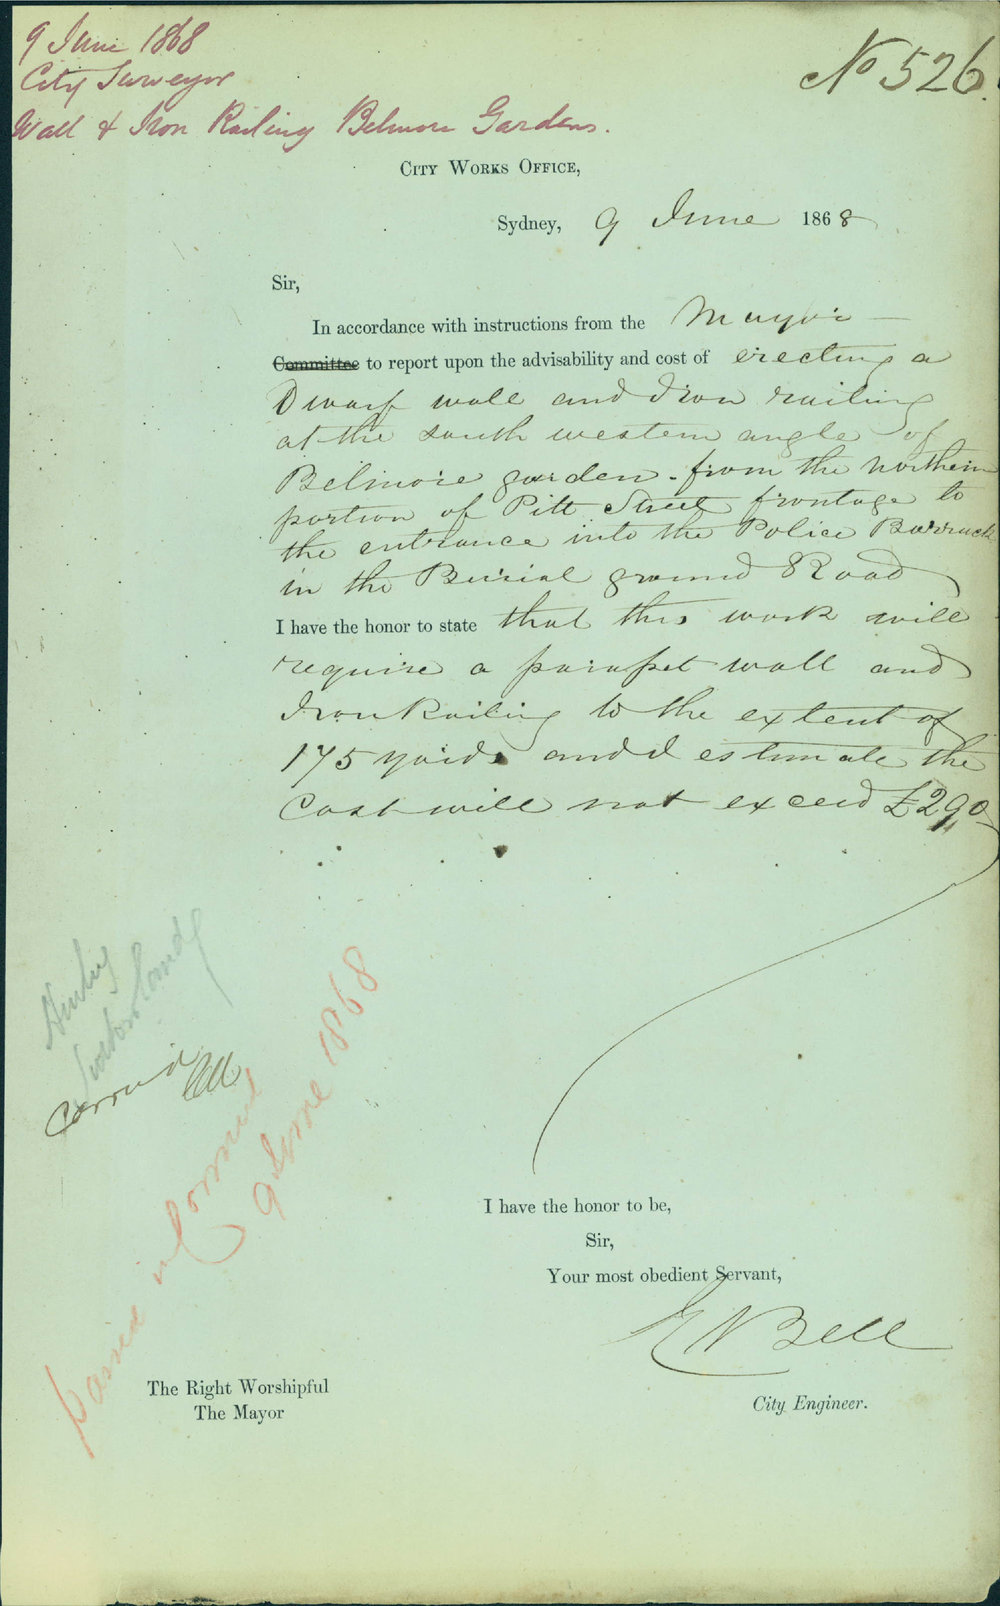 9 June 1868
City Surveyor
Wall & Iron Railing Belmore Gardens.
No 526.
City Works Office,
Sydney, 9 June 1868
Sir,
In accordance with instructions from the Mayor
Committee to report upon the advisability and cost of erecting a
Dwarf wall and Iron railing
at the south western angle of
Belmore garden from the northern
portion of Pitt Street frontage to
the entrance into the Police Barrack
in the Burial ground Road
I have the honor to state that this work will
require a parapet wall and
Iron Railing to the extent of
175 yards and I estimate the
Cost will not exceed £290
Carried
passed in Commee
9 June 1868
I have the honor to be,
Sir,
Your most obedient Servant,
E Bell
City Engineer.
The Right Worshipful
The Mayor